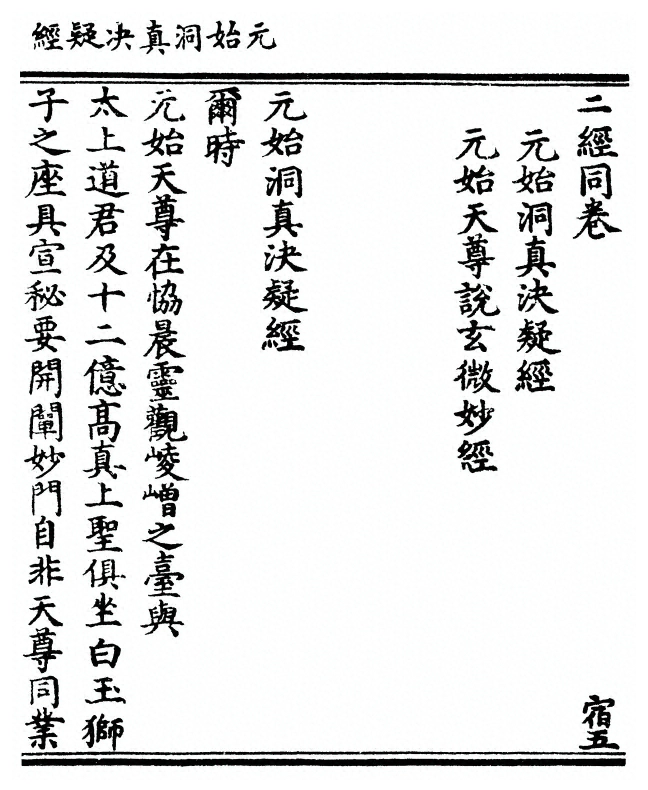 元始洞真决疑經
二經同卷
宿五
元始洞真決疑經
元始天尊說玄微妙經
元始洞真決疑經
爾時
元始天尊在恊晨靈觀崚嶒之臺與
太上道君及十二億高真上聖俱坐白玉獅
子之座具宣秘要開闡妙門自非天尊同業